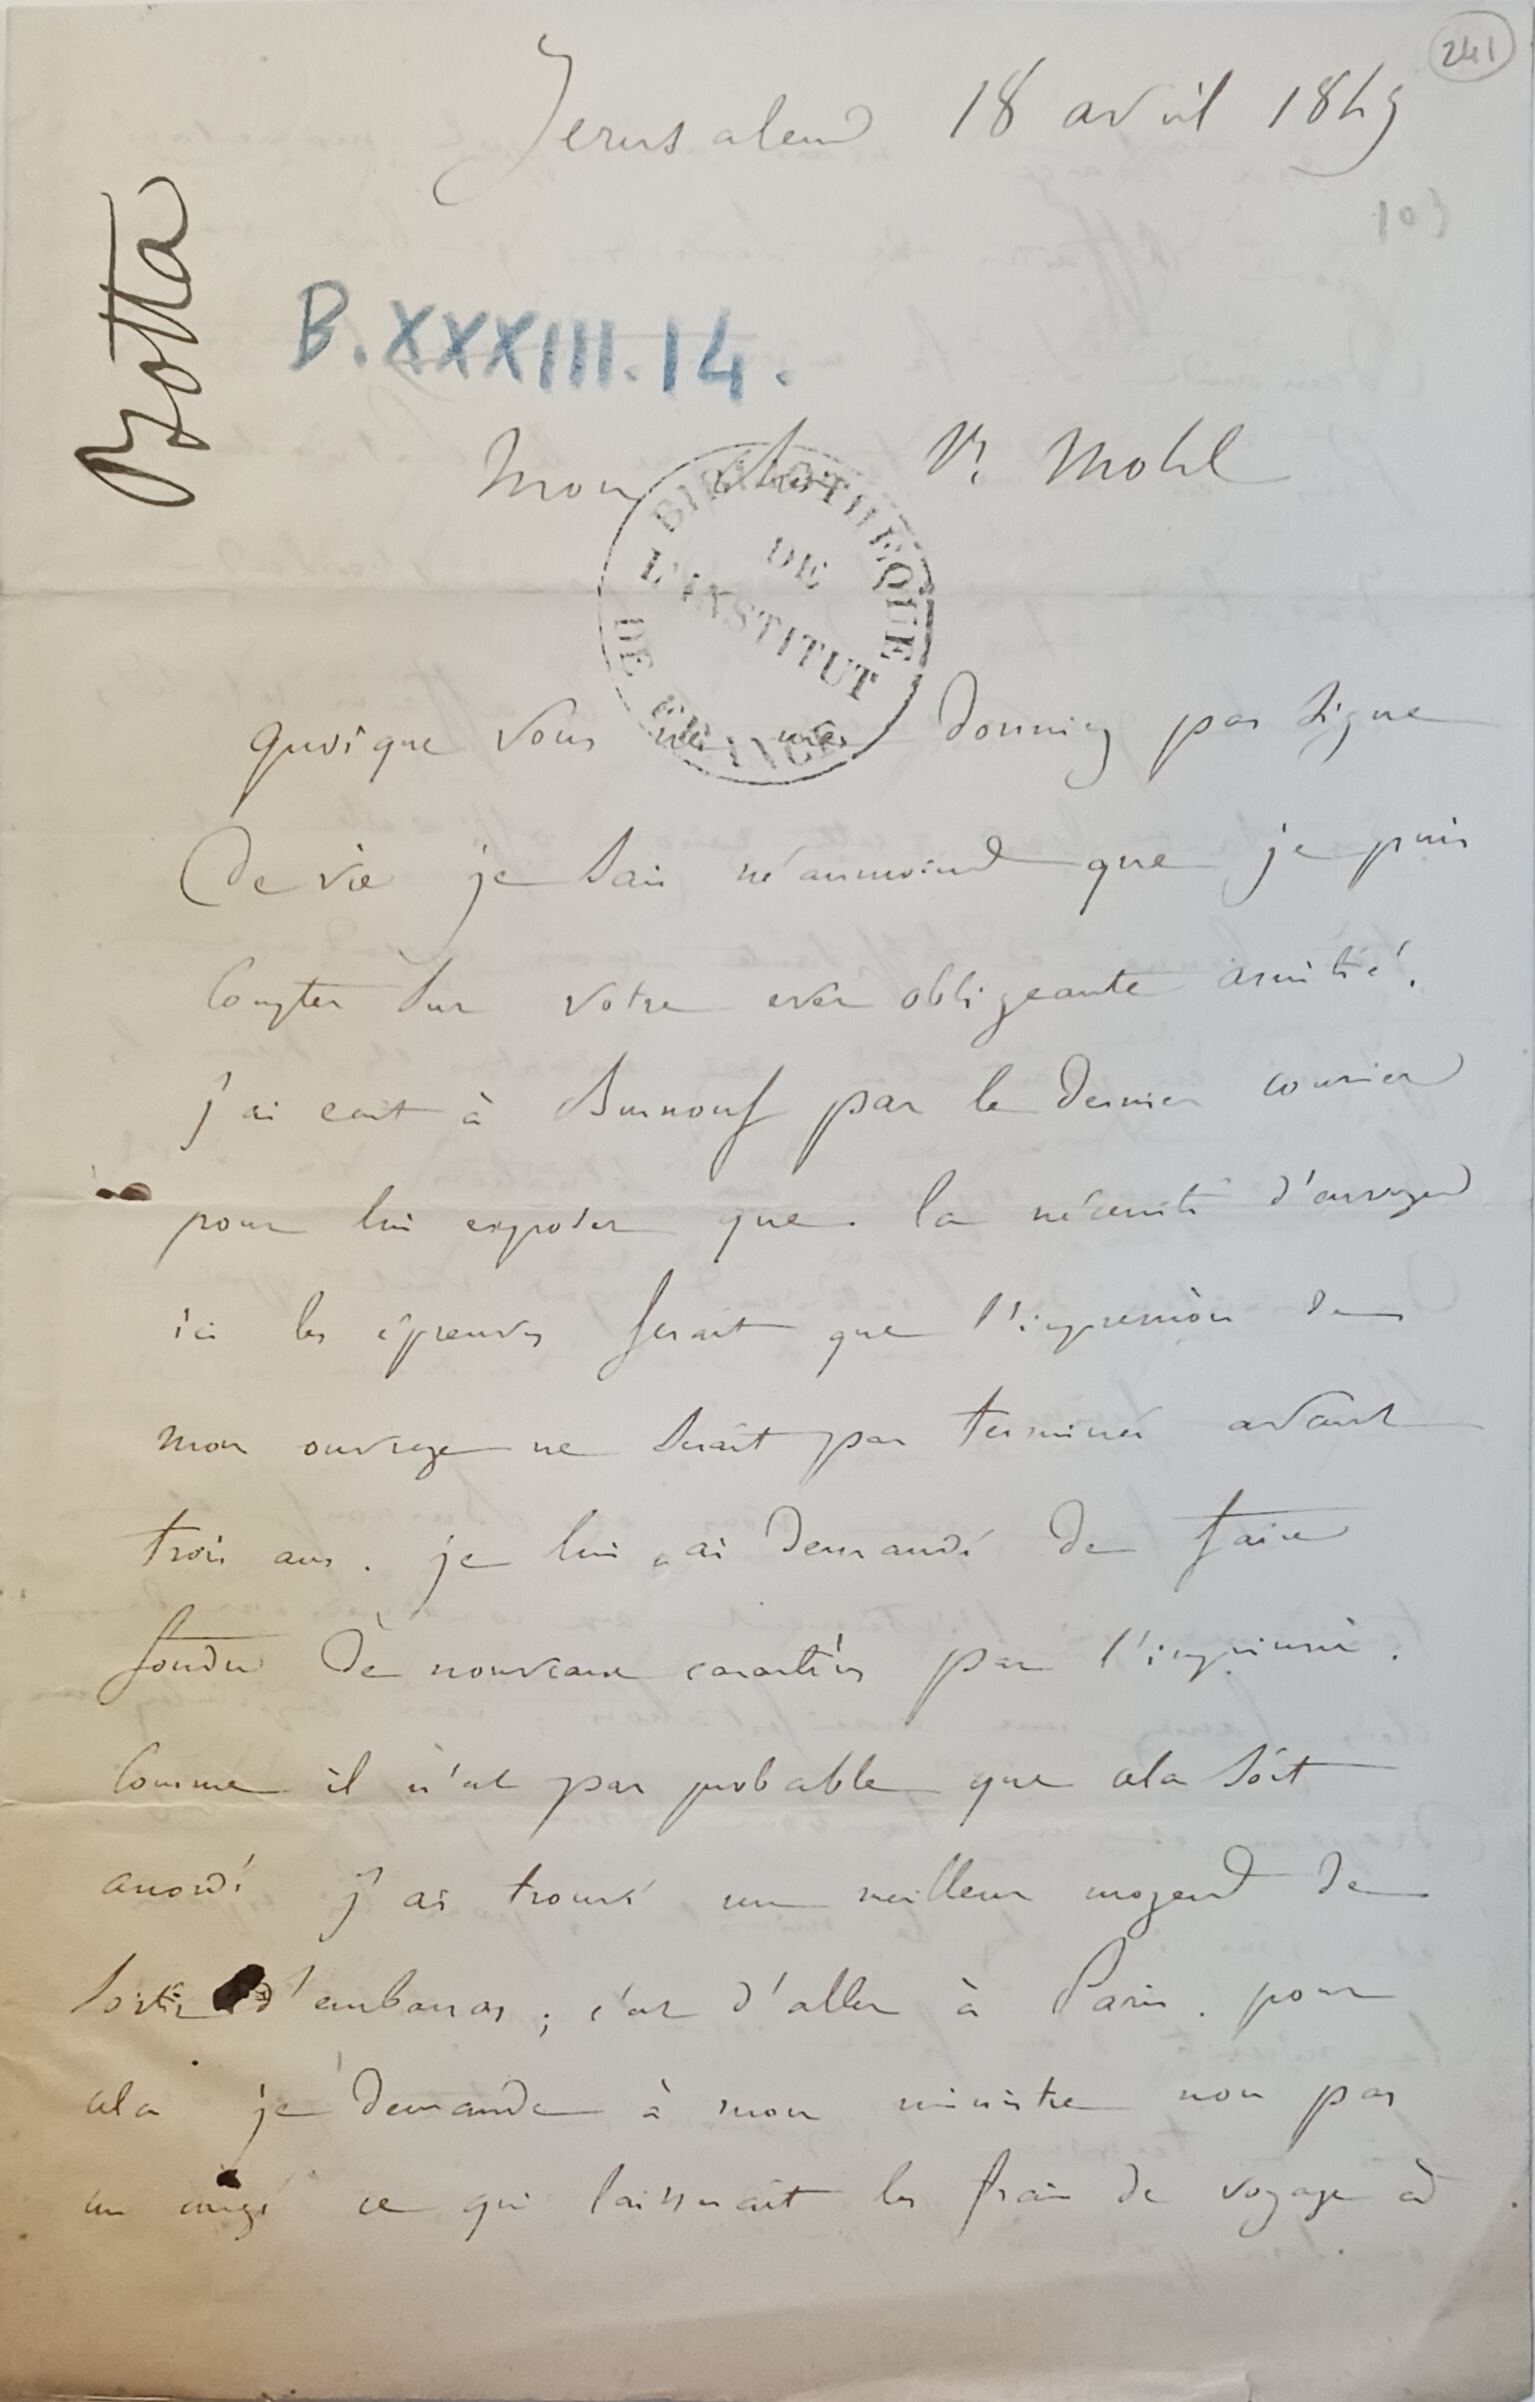 241
Jerusalem 18 avril 1849
103
Botta
B.XXXIII.14.
Mon cher Mr Mohl
BIBLIOTHEQUE DE L'INSTITUT DE FRANCE
quoique vous ne me donniez pas signe
de vie je sais néanmoins que je puis
compter sur votre obligeante amitié.
j'ai ecrit à Burnouf par le dernier courier
pour lui exposer que la nécessité d'envoyer
ici les épreuves ferait que l'impression de
mon ouvrage ne serait pas terminée avant
trois ans. je lui ai demandé de faire
fondre de nouveaux caractères par l'imprimerie.
Comme il n'est pas probable que cela soit
accordé j'ai trouvé un meilleur moyen de
sortir d'embarras; c'est d'aller à Paris. pour
cela je demande à mon ministre non pas
un congé ce qui laisserait les frais de voyage à